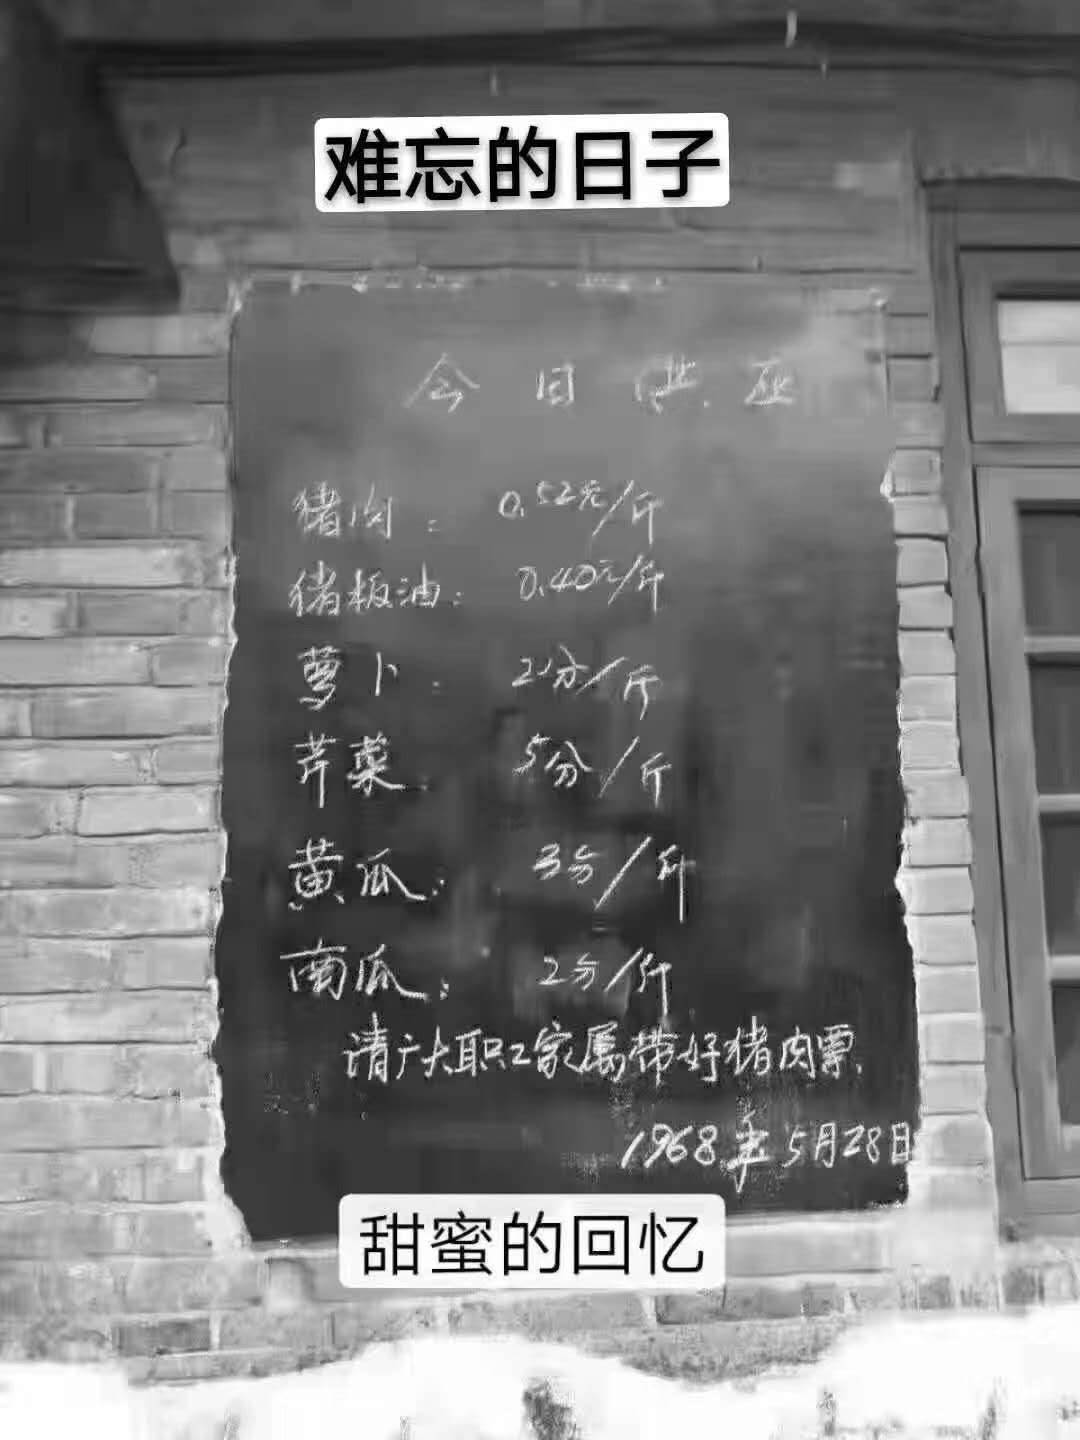 难忘的日子
今日供应
猪肉：0.52元/斤
猪板油：0.40元/斤
萝卜：2分/斤
芹菜：5分/斤
黄瓜：3分/斤
南瓜：2分/斤
请广大职工家属带好猪肉票.
1968年5月28日
甜蜜的回忆